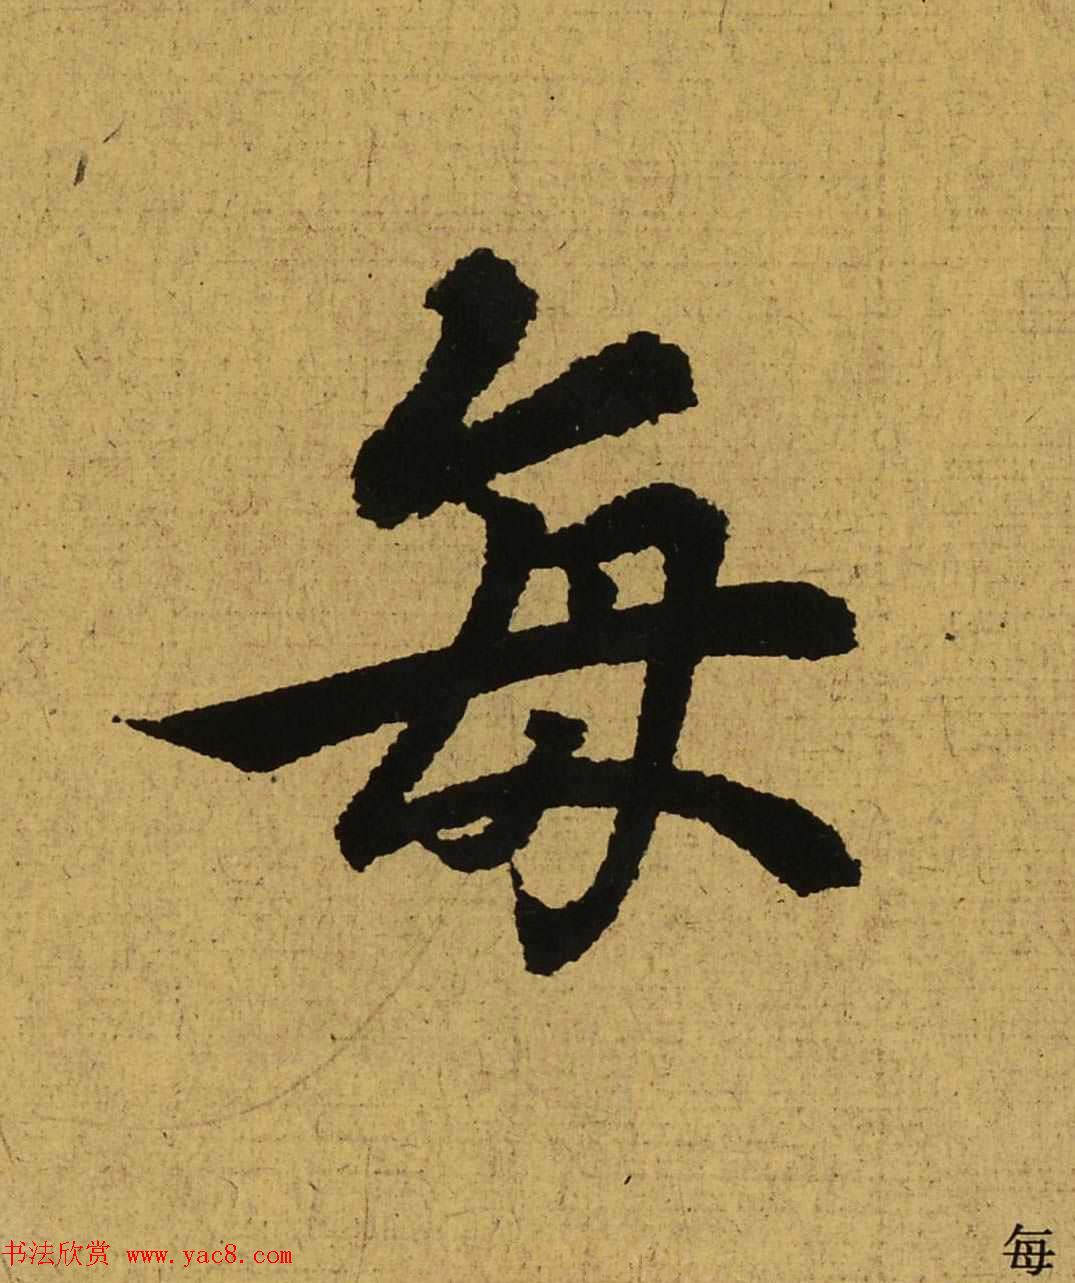 每
书法欣赏 www.yac8.com
每